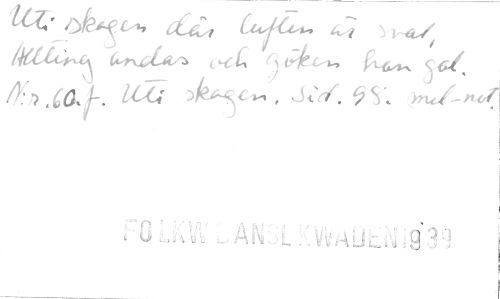 Uti skogen där luften är sval,
Allting andas och göken han gol.
N:r. 60.f. Uti skogen. Sid. 98. mel-not.
FOLKW DANSL KWADEN 1939